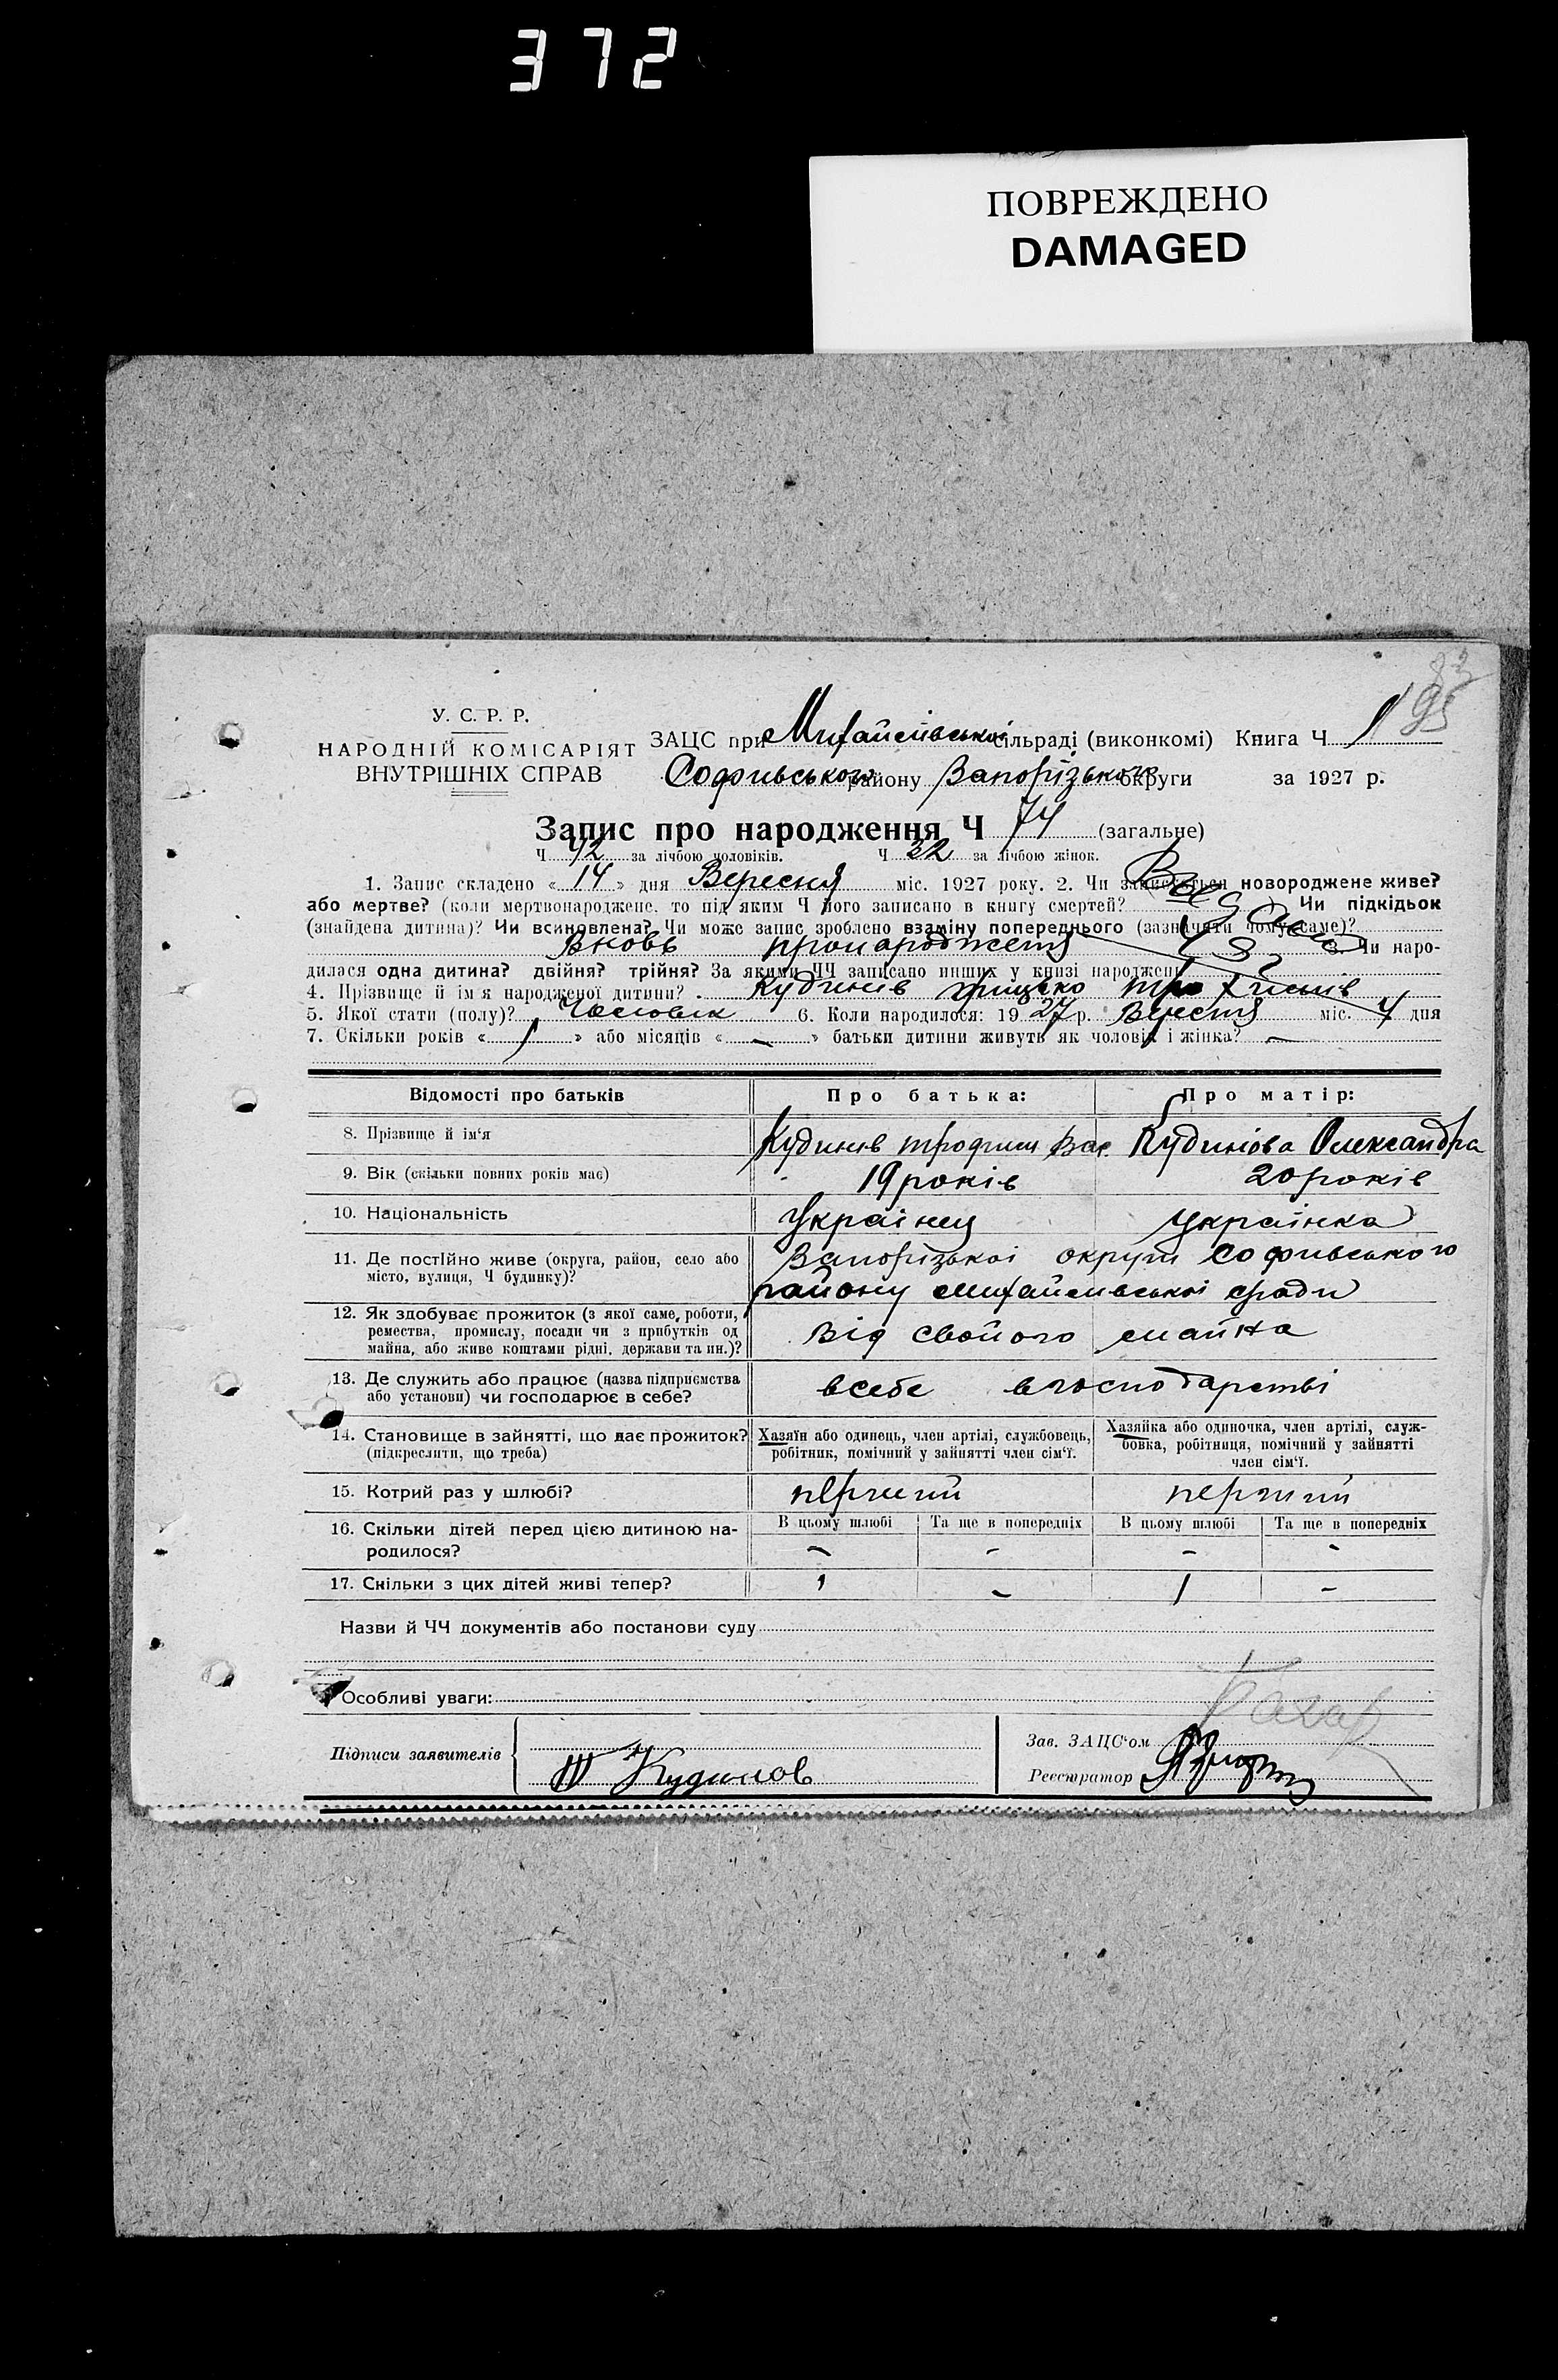 372
ПОВРЕЖДЕНО
DAMAGED
95
У. С. Р. Р.
НАРОДНІЙ КОМІСАРІЯТ
ВНУТРІШНІХ СПРАВ
ЗАЦС при Михайлівській сільраді (виконкомі) Книга Ч 1
Софиівського району Запорізького округи за 1927 р.
Запис про народження Ч 74 (загальне)
Ч 42 за лічбою чоловіків. Ч 32 за лічбою жінок.
1. Запис складено « 14 » дня Вересня міс. 1927 року. 2. Чи записується новороджене живе?
або мертве? (коли мертвонароджене, то під яким Ч його записано в книгу смертей? ) Чи підкідьок
(знайдена дитина)? Чи всиновлена? Чи може запис зроблено взаміну попереднього (зазначити чому саме)?
Вновь 3. Чи наро-
дилася одна дитина? двійня? трійня? За якими ЧЧ записано инших у книзі народжень
4. Прізвище й ім'я народженої дитини? Кудинів
5. Якої стати (полу)? Чоловік 6. Коли народилося: 1927 р. Вересня міс. 4 дня
7. Скільки років « 1 » або місяців « – » батьки дитини живуть як чоловік і жінка? –
Відомості про батьків Про батька: Про матір:
8. Прізвище й ім'я Кудинів Трофим Вас. Кудинова Олександра
9. Вік (скільки повних років має) 19 років 20 років
10. Національність Українец Українка
11. Де постійно живе (округа, район, село або Запорізької округи Софивського
місто, вулиця, Ч будинку)? району Михайливської с/ради
12. Як здобуває прожиток (з якої саме, роботи,
ремества, промислу, посади чи з прибутків од Від свойого майна
майна, або живе коштами рідні, держави та ин.)?
13. Де служить або працює (назва підприємства всебе вгосподарстві
або установи) чи господарює в себе?
14. Становище в зайнятті, що дає прожиток? Хазяїн або одинець, член артілі, службовець, Хазяйка або одиночка, член артілі, служ-
(підкреслити, що треба) робітник, помічний у зайнятті член сім'ї. бовка, робітниця, помічний у зайнятті
член сім'ї.
15. Котрий раз у шлюбі? перший перший
16. Скільки дітей перед цією дитиною на- В цьому шлюбі Та ще в попередніх В цьому шлюбі Та ще в попередніх
родилося? – – – –
17. Скільки з цих дітей живі тепер? 1 – 1 –
Назви й ЧЧ документів або постанови суду
Особливі уваги:
Підписи заявителів Т Кудинов
Зав. ЗАЦС'ом
Реєстратор